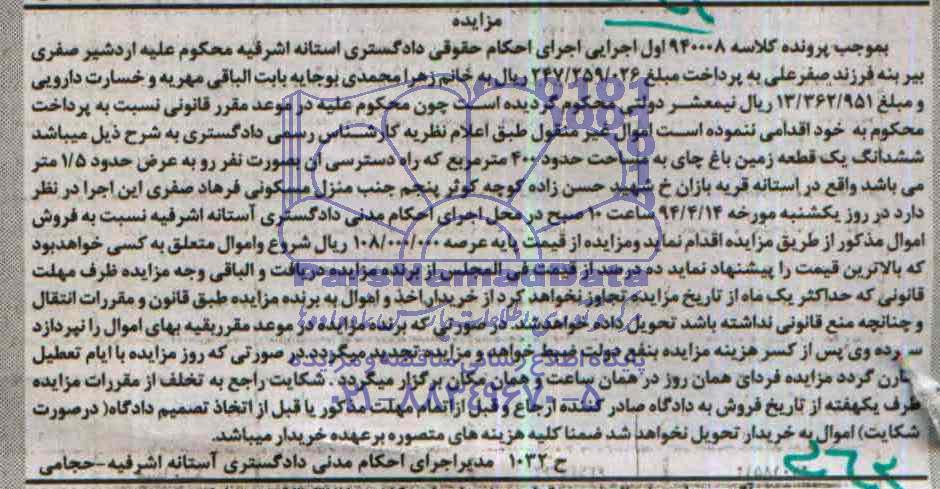 مزایده
بموجب پرونده کلاسه ۹۴۰۰۰۸ اول اجرایی اجرای احکام حقوقی دادگستری استانه اشرفیه محکوم علیه اردشیر صفری
بیر بنه فرزند صفرعلی به پرداخت مبلغ ۲۴۷/۲۵۹/۰۲۶ ریال به خانم زهرا محمدی بوجایه بابت الباقی مهریه و خسارت دارویی
و مبلغ ۱۳/۳۶۲/۹۵۱ ریال نیمعشر دولتی محکوم گردیده است چون محکوم علیه در موعد مقرر قانونی نسبت به پرداخت
محکوم به خود اقدامی ننموده است اموال غیر منقول طبق اعلام نظریه کارشناس رسمی دادگستری به شرح ذیل میباشد
ششدانگ یک قطعه زمین باغ چای به مساحت حدود ۴۰۰ مترمربع که راه دسترسی آن بصورت نفر رو به عرض حدود ۱/۵ متر
می باشد واقع در استانه قریه بازان خ شهید حسن زاده کوچه کوثر پنجم جنب منزل مسکونی فرهاد صفری این اجرا در نظر
دارد در روز یکشنبه مورخه ۹۴/۴/۱۴ ساعت ۱۰ صبح در محل اجرای احکام مدنی دادگستری آستانه اشرفیه نسبت به فروش
اموال مذکور از طریق مزایده اقدام نماید ومزایده از قیمت پایه عرصه ۱۰۸/۰۰۰/۰۰۰ ریال شروع واموال متعلق به کسی خواهدبود
که بالاترین قیمت را پیشنهاد نماید ده درصد از قیمت فی المجلس از برنده مزایده دریافت و الباقی وجه مزایده ظرف مهلت
قانونی که حداکثر یک ماه از تاریخ مزایده تجاوز نخواهد کرد از خریدار اخذ و اموال به برنده مزایده طبق قانون و مقررات انتقال
و چنانچه منع قانونی نداشته باشد تحویل داده خواهدشد. در صورتی که برنده مزایده در موعد مقرربقیه بهای اموال را نپردازد
سپرده وی پس از کسر هزینه مزایده بنفع دولت ضبط خواهد و مزایده تجدید میگردد در صورتی که روز مزایده با ایام تعطیل
مقارن گردد مزایده فردای همان روز در همان ساعت و همان مکان برگزار میگردد . شکایت راجع به تخلف از مقررات مزایده
ظرف یکهفته از تاریخ فروش به دادگاه صادر کننده ارجاع و قبل از اتمام مهلت مذکور یا قبل از اتخاذ تصمیم دادگاه( درصورت
شکایت) اموال به خریدار تحویل نخواهد شد ضمنا کلیه هزینه های متصوره برعهده خریدار میباشد.
ح ۱۰۳۲ مدیراجرای احکام مدنی دادگستری آستانه اشرفیه-حجامی
ParsNamadData
پایگاه اطلاع رسانی مناقصه و مزایده
۰۲۱-۸۸۳۴۹۶۷۰-۵